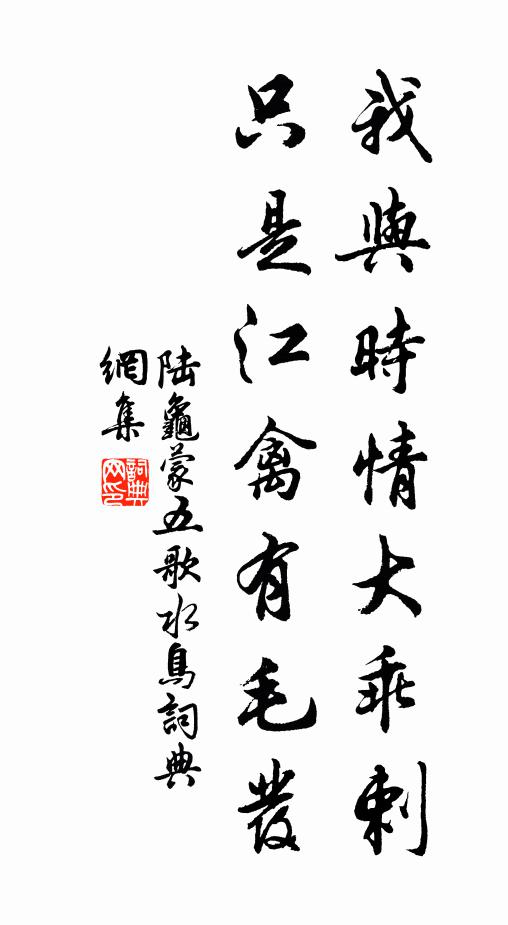 我與時情大乖剌
只是江禽有毛發
陸龜蒙五歌水鳥詞典
網集
詞典網印